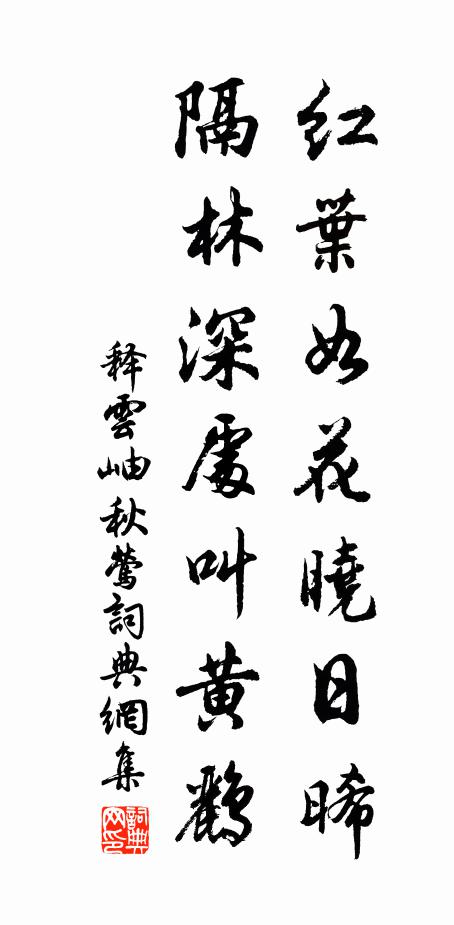 红葉如花曉日晞
隔林深處叫黄鸝
释雲岫秋鶯詞典網集
詞典
网印